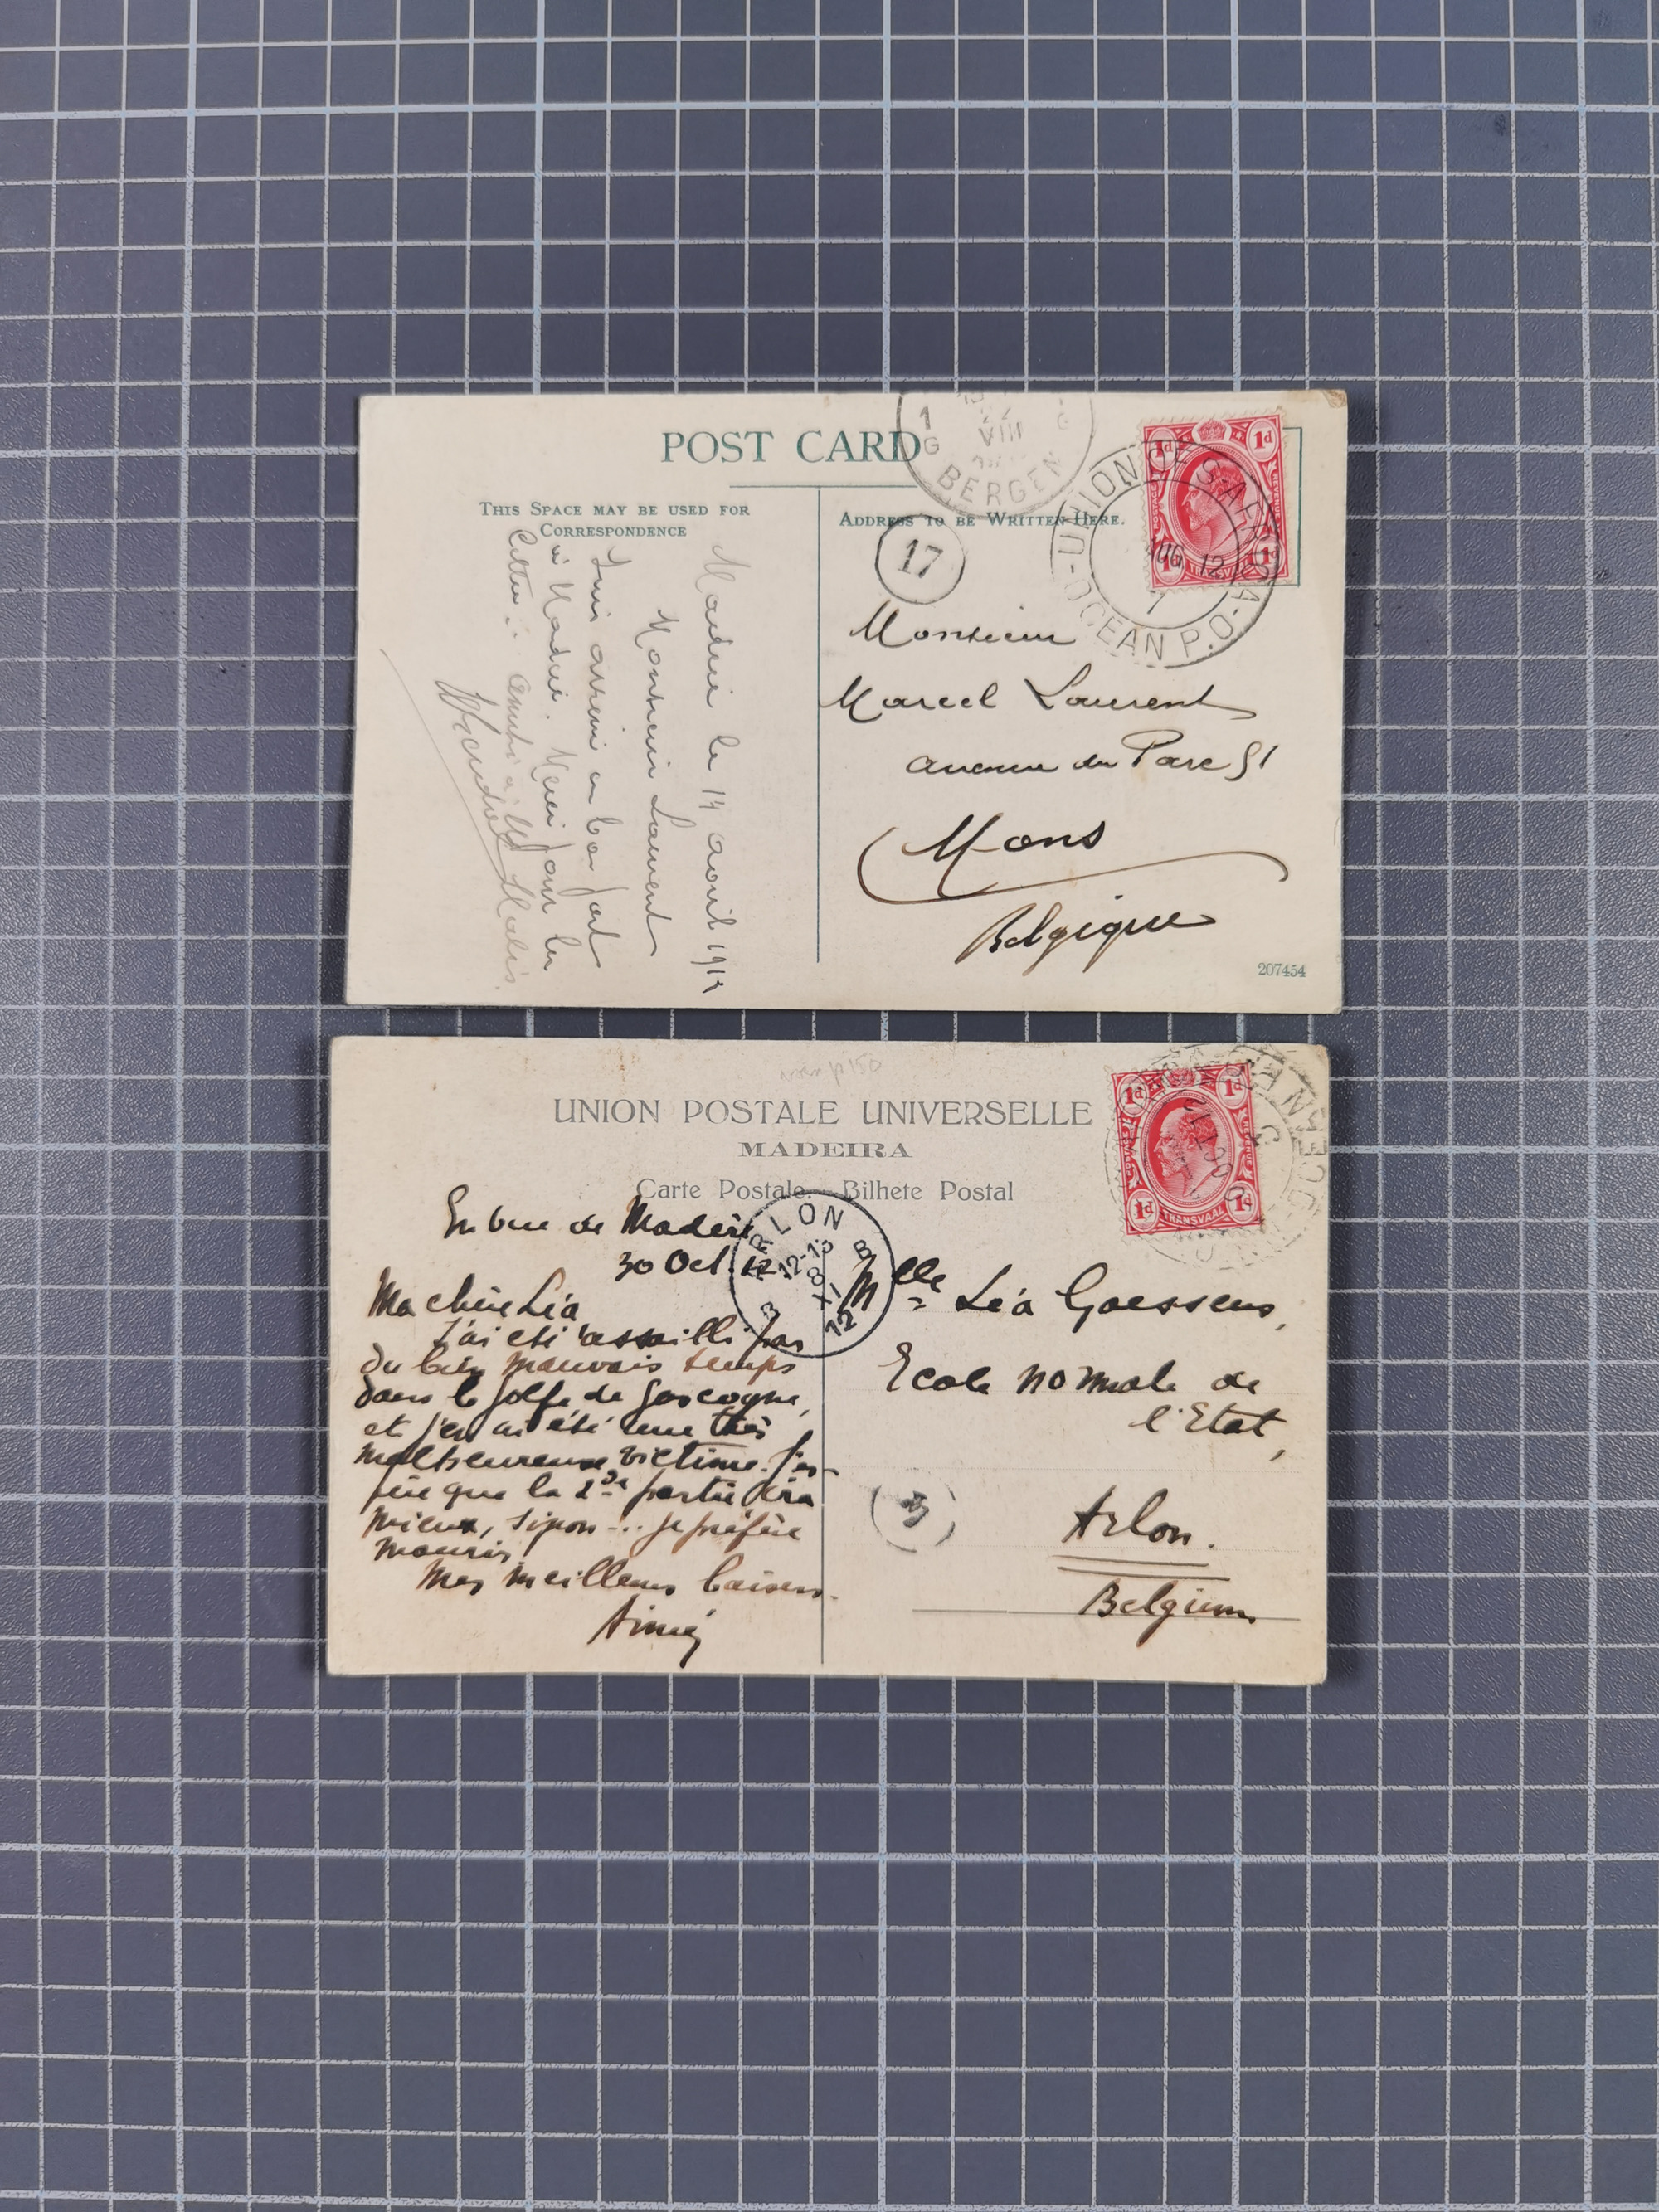 POST CARD
THIS SPACE MAY BE USED FOR
CORRESPONDENCE
ADDRESS TO BE WRITTEN HERE.
1
G
VIII
G
BERGEN
UNION OF S. AFRICA
OCEAN P.O.
UG 12
1d
1d
1d
1d
TRANSVAAL
17
Monsieur
Marcel Laurent
avenue du Parc 51
Mons
Belgique
207454
Madère le 14 août 191
Monsieur Laurent
Suis arrivé à bon port
à Madère. Merci pour les
amitiés à
UNION POSTALE UNIVERSELLE
MADEIRA
Carte Postale. — Bilhete Postal
1d
1d
1d
1d
TRANSVAAL
OCEAN
OCT 12
ARLON
12-13
8
XI
12
B
3
En vue de Madère
30 Oct. 12
Ma chère Léa
J'ai été assailli par
du bien mauvais temps
dans le golfe de Gascogne,
et j'en ai été une très
malheureuse victime. J'es-
père que la 2de partie ira
mieux, sinon... je préfère
mourir.
Mes meilleurs baisers.
Aimé
Mlle Léa Goessens,
Ecole normale de
l'Etat,
3
Arlon.
Belgium